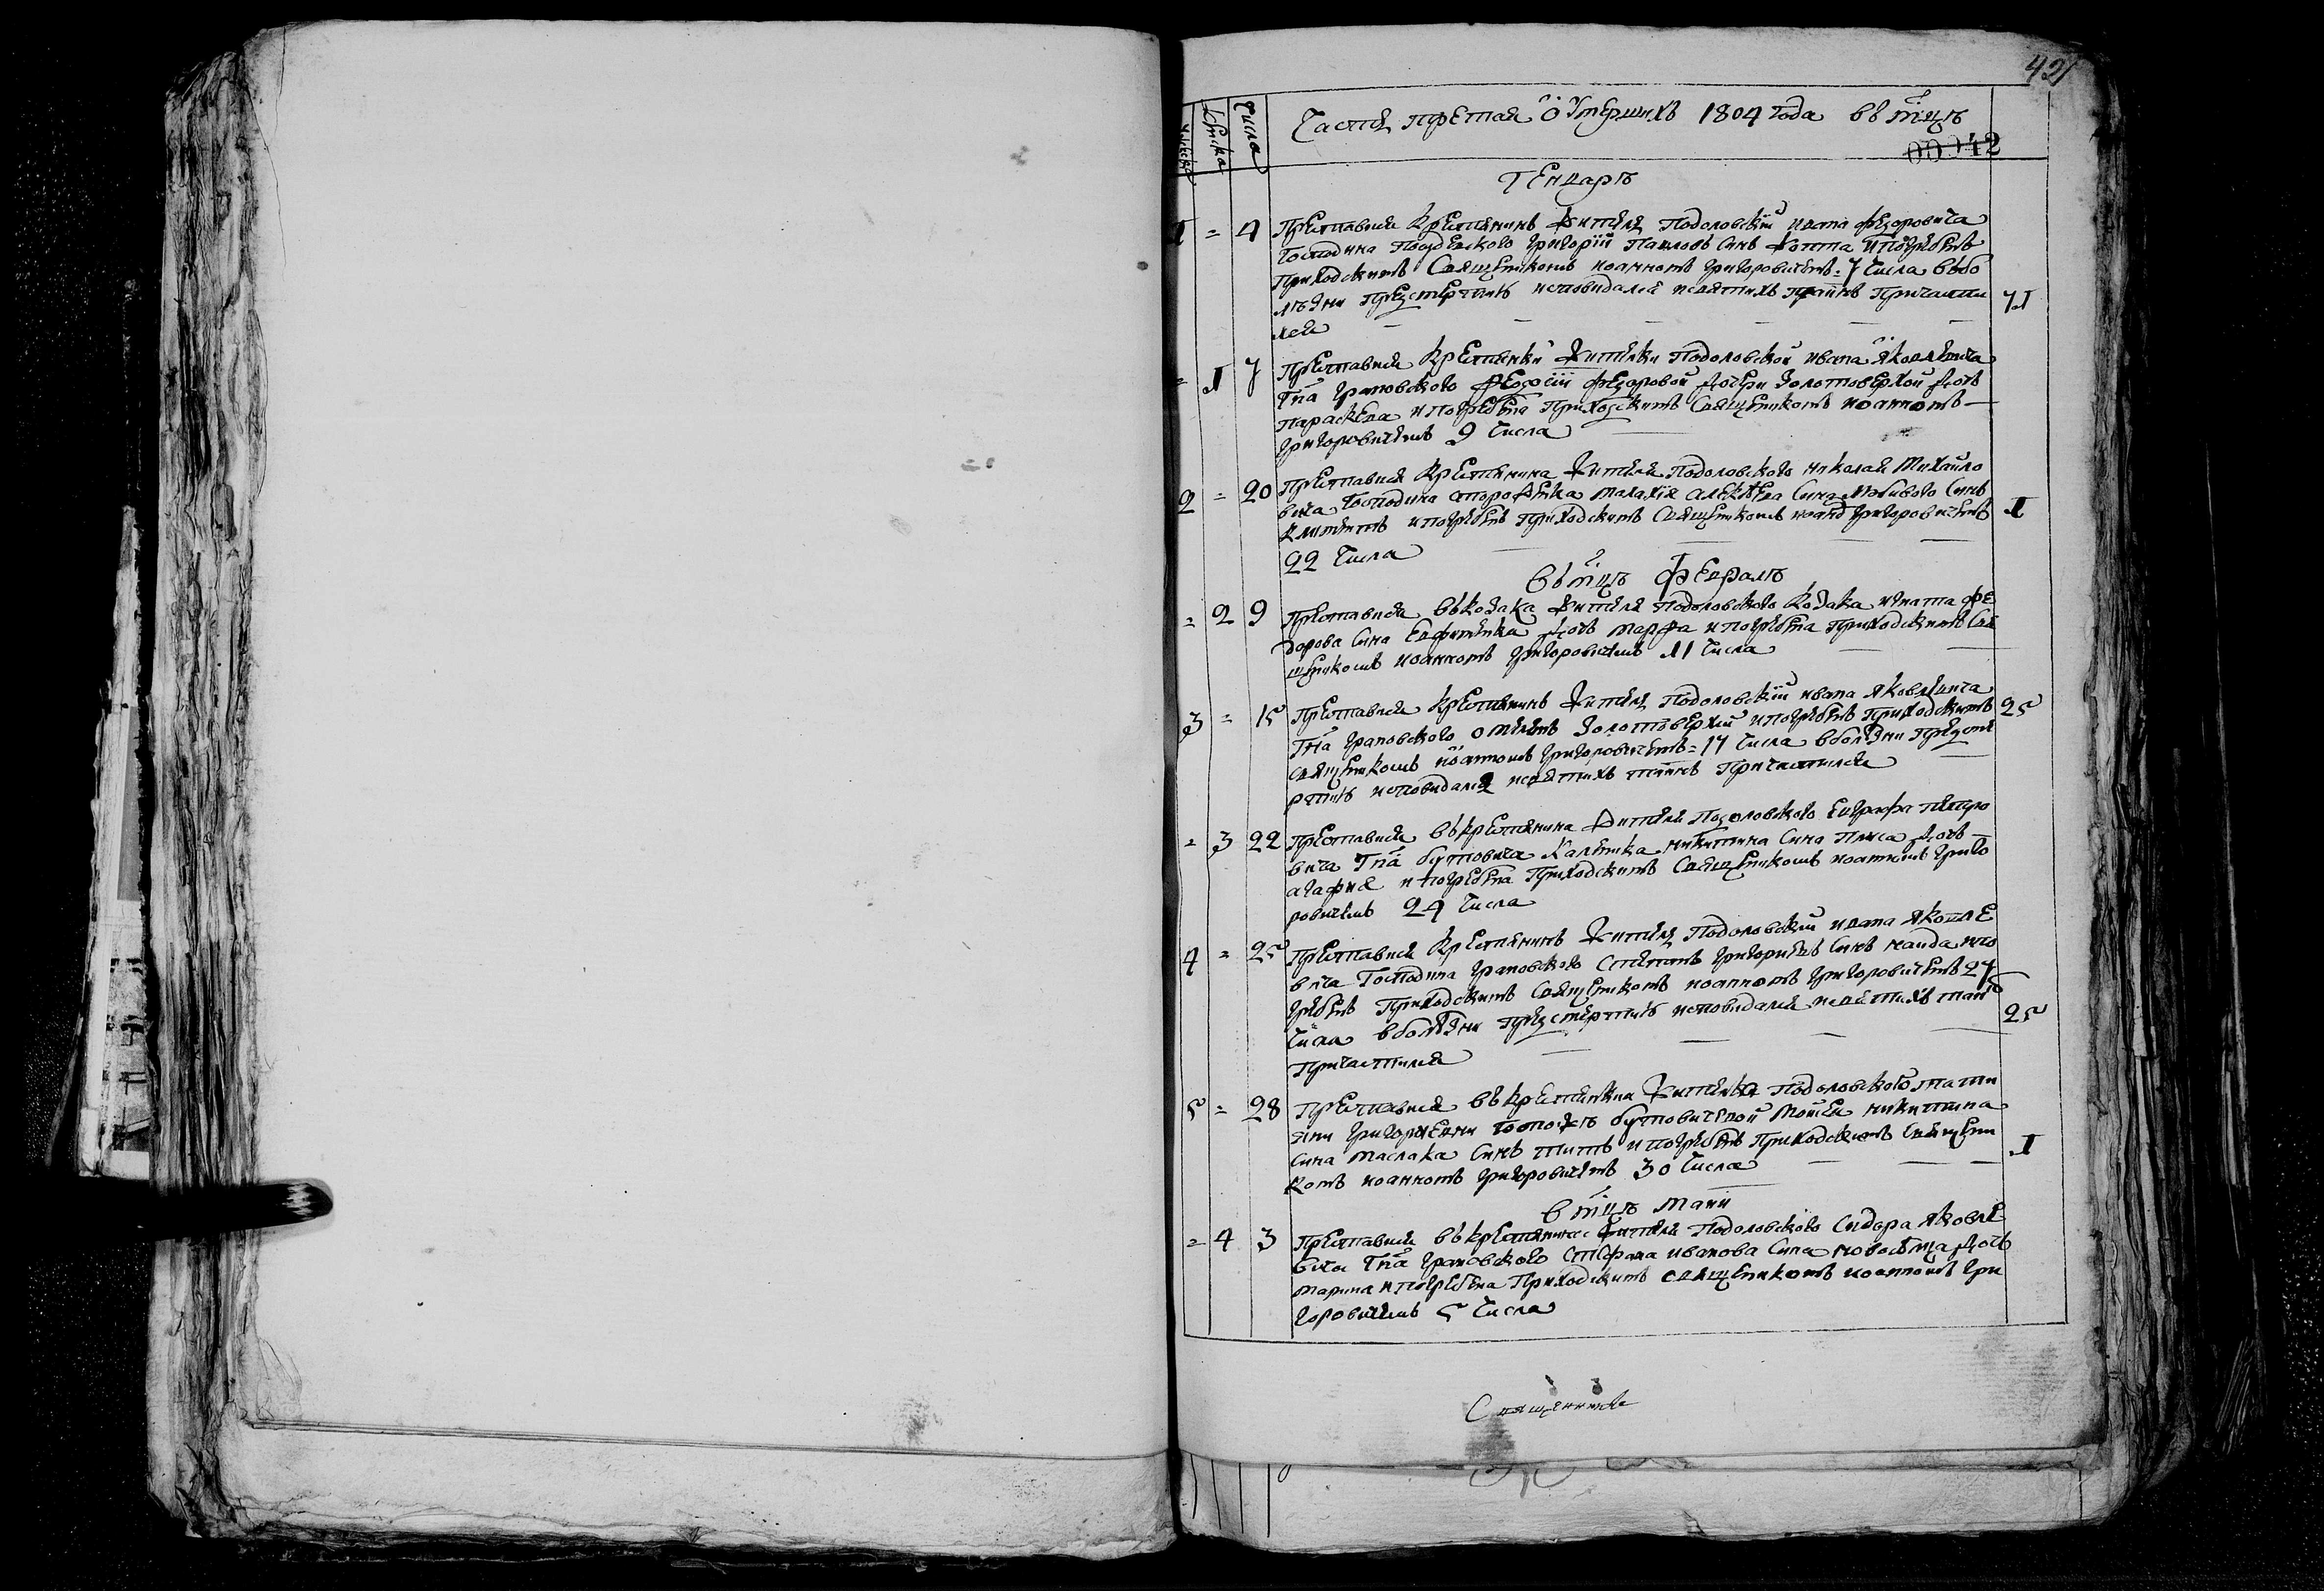 42
Числа
Часть третая о Умершихъ 1804 года въ мцѣ
00042
Генварѣ
1 = 4 Преставися крестянинъ житель подоловскій ивана федоровича
Господина григорій павловъ синъ и погребенъ
приходскимъ священикомъ иоанномъ григоровичемъ 7 числа въ бо
лѣзни предсмертнѣ исповидался исвятихъ таинъ причасти 71
лся
= 1 7 Преставися крестянки жителки подоловской ивана яковлевича
Гна грановского феодосіи федоровой дочери золотоверхой дочь
параскева и погребена приходскимъ священикомъ иоанномъ
григоровичемъ 9 числа
2 = 20 Преставися крестянина жителя подоловского николая михайло
вича Господина малахія алексѣева сина синъ
климентъ и погребенъ приходскимъ священикомъ иоанъ григоровичемъ 1
22 числа
въ мцѣ февралѣ
= 2 9 Преставися въ козака жителя подоловского козака игната фе
дорова сина евфименка дочь марфа и погребена приходскимъ свя
щеникомъ иоанномъ григоровичемъ 11 числа
3 = 15 Преставися крестянинъ житель подоловскій ивана яковлевича 25
Гна грановского омелянъ золотоверхій и погребенъ приходскимъ
священикомъ иоанномъ григоровичемъ = 17 числа въ болѣзни предсме
ртнѣ исповидался исвятихъ таинъ причастился
= 3 22 Преставися въ крестянина жителя подоловского евграфа петро
вича Гна бутовича никитина сина дочь
агафия и погребена приходскимъ священикомъ иоанномъ григо
ровичемъ 24 числа
4 = 25 Преставися крестянинъ житель подоловскій ивана яковле
вича Господина грановского степанъ григориевъ синъ найда и по
гребенъ приходскимъ священикомъ иоанномъ григоровичемъ 27
числа въ болѣзни предсмертнѣ исповидался исвятихъ таинъ 25
причастился
5 = 28 Преставися въ крестянина подоловского тати
яни григориевни бутовичевой моисея никитина
сина маслака синъ титъ и погребенъ приходскимъ священи 1
комъ иоанномъ григоровичемъ 30 числа
в мцѣ маии
= 4 3 Преставися въ крестянина жителя подоловского сидора яковле
вича Гна грановского стефана иванова сина дочь
марина и погребена приходскимъ священикомъ иоанномъ гри
горовичемъ 5 числа
Священникъ